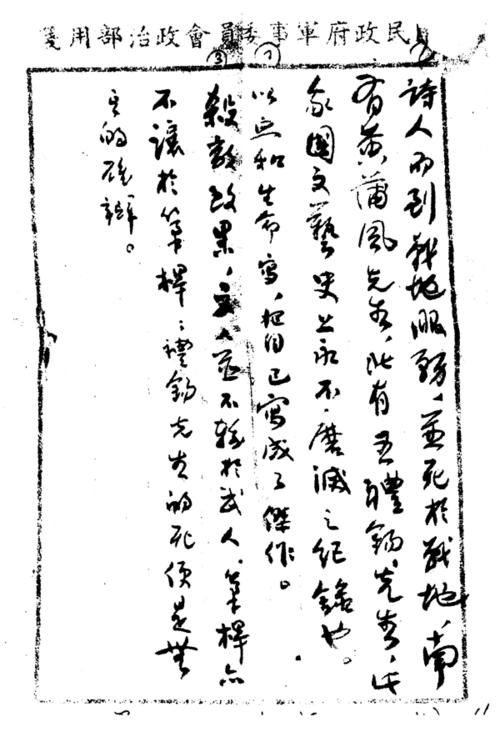 民政府軍事委員會政治部用箋
詩人而到戰地服務，並死於戰地，南
有黃蒲風先生，北有王禮錫先生，此
我國文藝史上永不磨滅之紀錄也。
以血和生命寫，把自己寫成了傑作。
殺敵致果，文人並不輸於武人，筆桿亦
不讓於槍桿；禮錫先生的死便是無
上的雄辯。